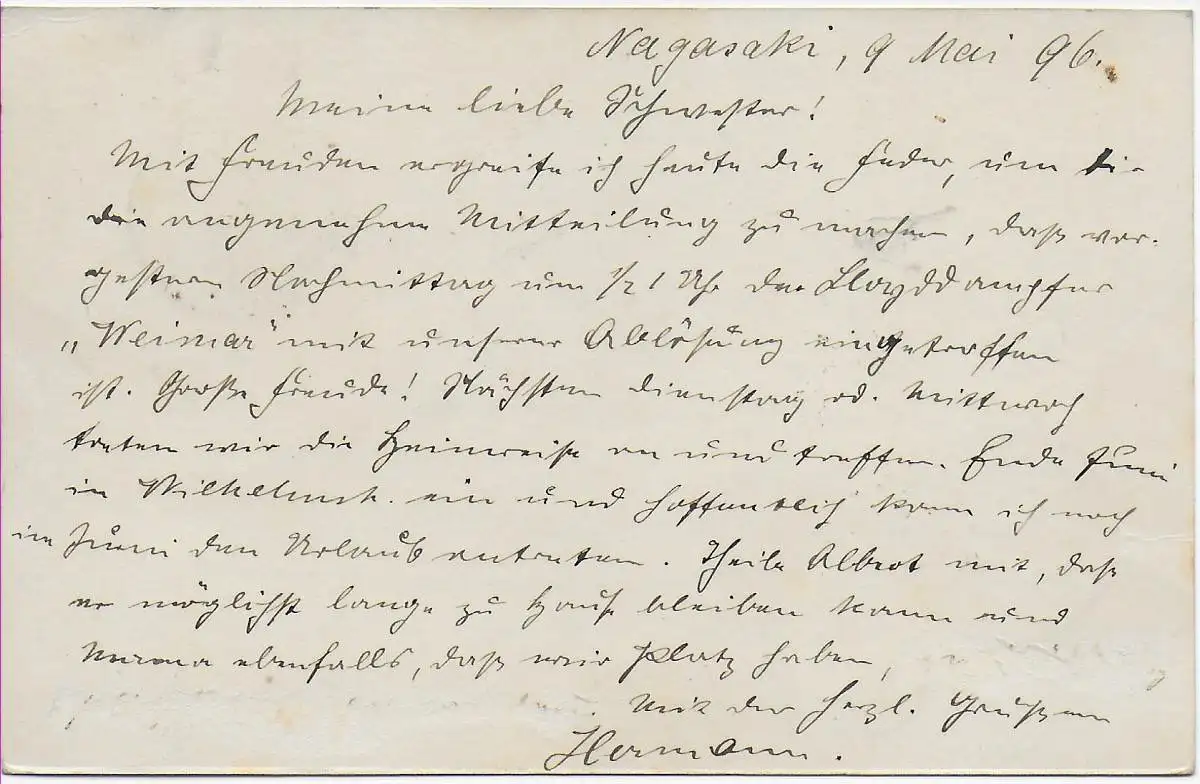 Nagasaki, 9 Mai 96.
Meine liebe Schwester!
Mit Freuden ergreife ich heute die Feder, um
die angenehme Mitteilung zu machen, daß vor-
gestern Nachmittag um 1/2 1 Uhr der Lloyddampfer
„Weimar" mit unserer Ablösung eingetroffen
ist. Große Freude! Nächsten Dienstag od. Mittwoch
treten wir die Heimreise an und treffen Ende Juni
in Wilhelmsh. ein und hoffentlich kann ich noch
im Juni den Urlaub antreten. Theile Albert mit, daß
er möglichst lange zu Hause bleiben kann und
Mama ebenfalls, daß wir Platz haben,
Mit den herzl. Grüßen
Hermann.